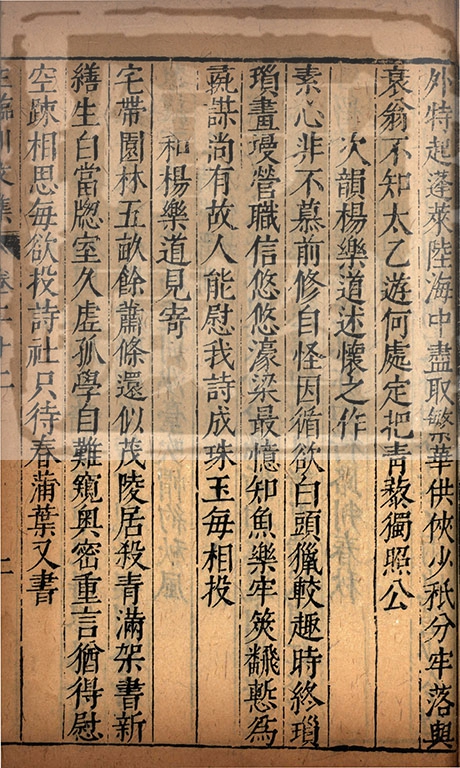 外特起蓬萊陸海中盡取繁華供俠少秖分牢落與
衰翁不知太乙遊何處定把青藜獨照公
次韻楊樂道述懷之作
素心非不慕前修自怪因循欲白頭獵較趣時終瑣
瑣畫墁營職信悠悠濠梁最憶知魚樂牢筴翻慙為
彘謀尚有故人能慰我詩成珠玉每相投
和楊樂道見寄
宅帶園林五畝餘蕭條還似茂陵居殺青滿架書新
繕生白當牕室久虛孤學自難窺奧密重言猶得慰
空疎相思每欲投詩社只待春蒲葉又書
王臨川文集 卷二十二 二